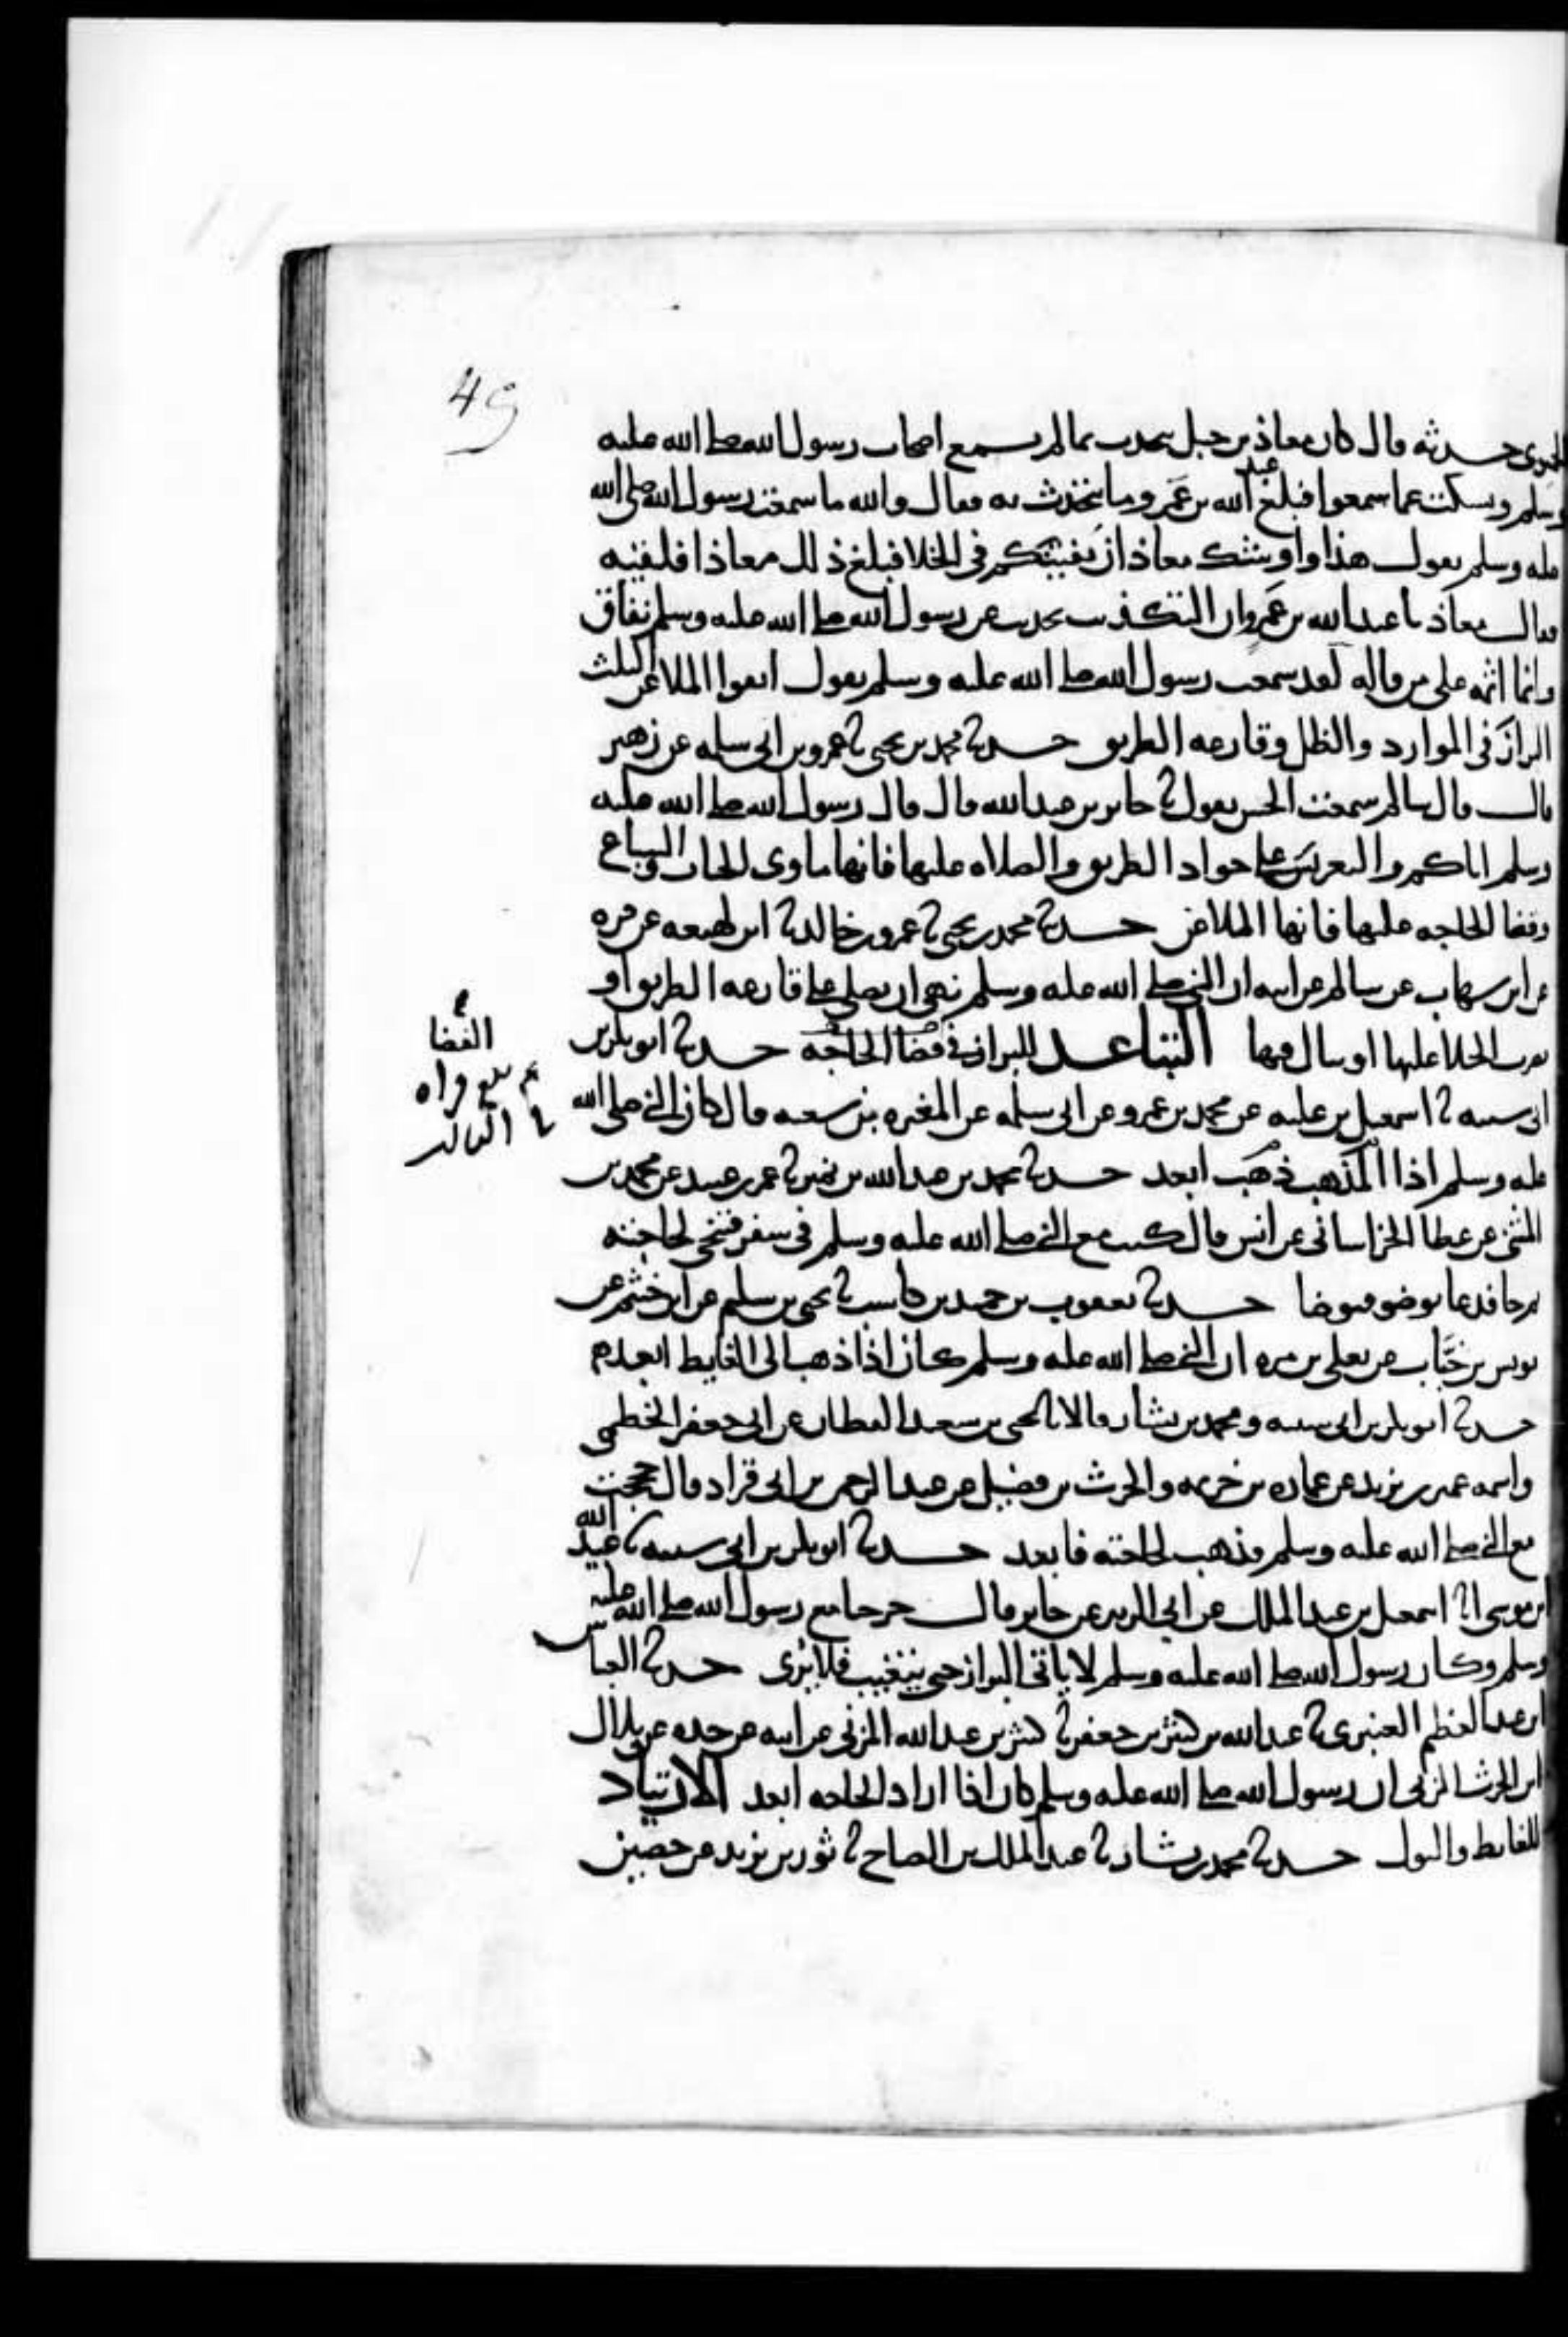 49
حدثه قال كان معاذ بن جبل يتحدث بما لم يسمع اصحاب رسول الله صلى الله عليه
وسلم ويسكت عما سمعوا فبلغ عبد الله بن عمرو ما يتحدث به فقال والله ما سمعت رسول الله صلى الله
عليه وسلم يقول هذا واوشك معاذ ان يفتنكم في الخلا فبلغ ذلك معاذا فلقيه
فقال معاذ يا عبد الله بن عمرو ان التكذيب بحديث عن رسول الله صلى الله عليه وسلم نفاق
وانما اثمه على من قاله لقد سمعت رسول الله صلى الله عليه وسلم يقول اتقوا الملاعن الثلث
البراز في الموارد والظل وقارعه الطريق حدثنا محمد بن يحيى ثنا عمرو بن ابي سلمه عن زهير
قال قال سالم سمعت الحسن يقول ثنا جابر بن عبد الله قال قال رسول الله صلى الله عليه
وسلم اياكم والتعريس على جواد الطريق والصلاه عليها فانها ماوى الحيات والسباع
وقضا الحاجه عليها فانها الملاعن حدثنا محمد بن يحيى ثنا عمرو بن خالد ثنا ابن لهيعه عن قره
عن ابن شهاب عن سالم عن ابيه ان النبي صلى الله عليه وسلم نهى ان يصلى على قارعه الطريق او
يضرب الخلا عليها او يبال فيها التباعد للبراز في قضا الحاجه حدثنا ابو بكر بن
ابي شيبه ثنا اسمعيل بن عليه عن محمد بن عمرو عن ابي سلمه عن المغيره بن شعبه قال كان النبي صلى الله
عليه وسلم اذا المذهب ذهب ابعد حدثنا محمد بن عبد الله بن نمير ثنا عمر بن عبيد عن محمد بن
المثنى عن عطا الخراساني عن انس قال كنت مع النبي صلى الله عليه وسلم في سفر فتنحى لحاجته
ثم جا فدعا بوضو فتوضا حدثنا يعقوب بن حميد بن كاسب ثنا يحيى بن سليم عن ابن خثيم عن
يونس بن خباب عن يعلى بن مره ان النبي صلى الله عليه وسلم كان اذا ذهب الى الغايط ابعد
حدثنا ابو بكر بن ابي شيبه ومحمد بن بشار قالا ثنا يحيى بن سعيد القطان عن ابي جعفر الخطمي
واسمه عمير بن يزيد عن عماره بن خزيمه والحرث بن فضيل عن عبد الرحمن بن ابي قراد قال حججت
مع النبي صلى الله عليه وسلم فذهب لحاجته فابعد حدثنا ابو بكر بن ابي شيبه ثنا عبيد الله
ابن موسى انا اسمعيل بن عبد الملك عن ابي الزبير عن جابر قال خرجنا مع رسول الله صلى الله عليه
وسلم وكان رسول الله صلى الله عليه وسلم لا ياتي البراز حتى يتغيب فلا يرى حدثنا العباس
ابن عبد العظيم العنبري ثنا عبد الله بن كثير بن جعفر ثنا كثير بن عبد الله المزني عن ابيه عن جده عن بلال
ابن الحرث المزني ان رسول الله صلى الله عليه وسلم كان اذا اراد الحاجه ابعد الارتياد
للغايط والبول حدثنا محمد بن بشار ثنا عبد الملك بن الصباح ثنا ثور بن يزيد عن حصين
الفضا